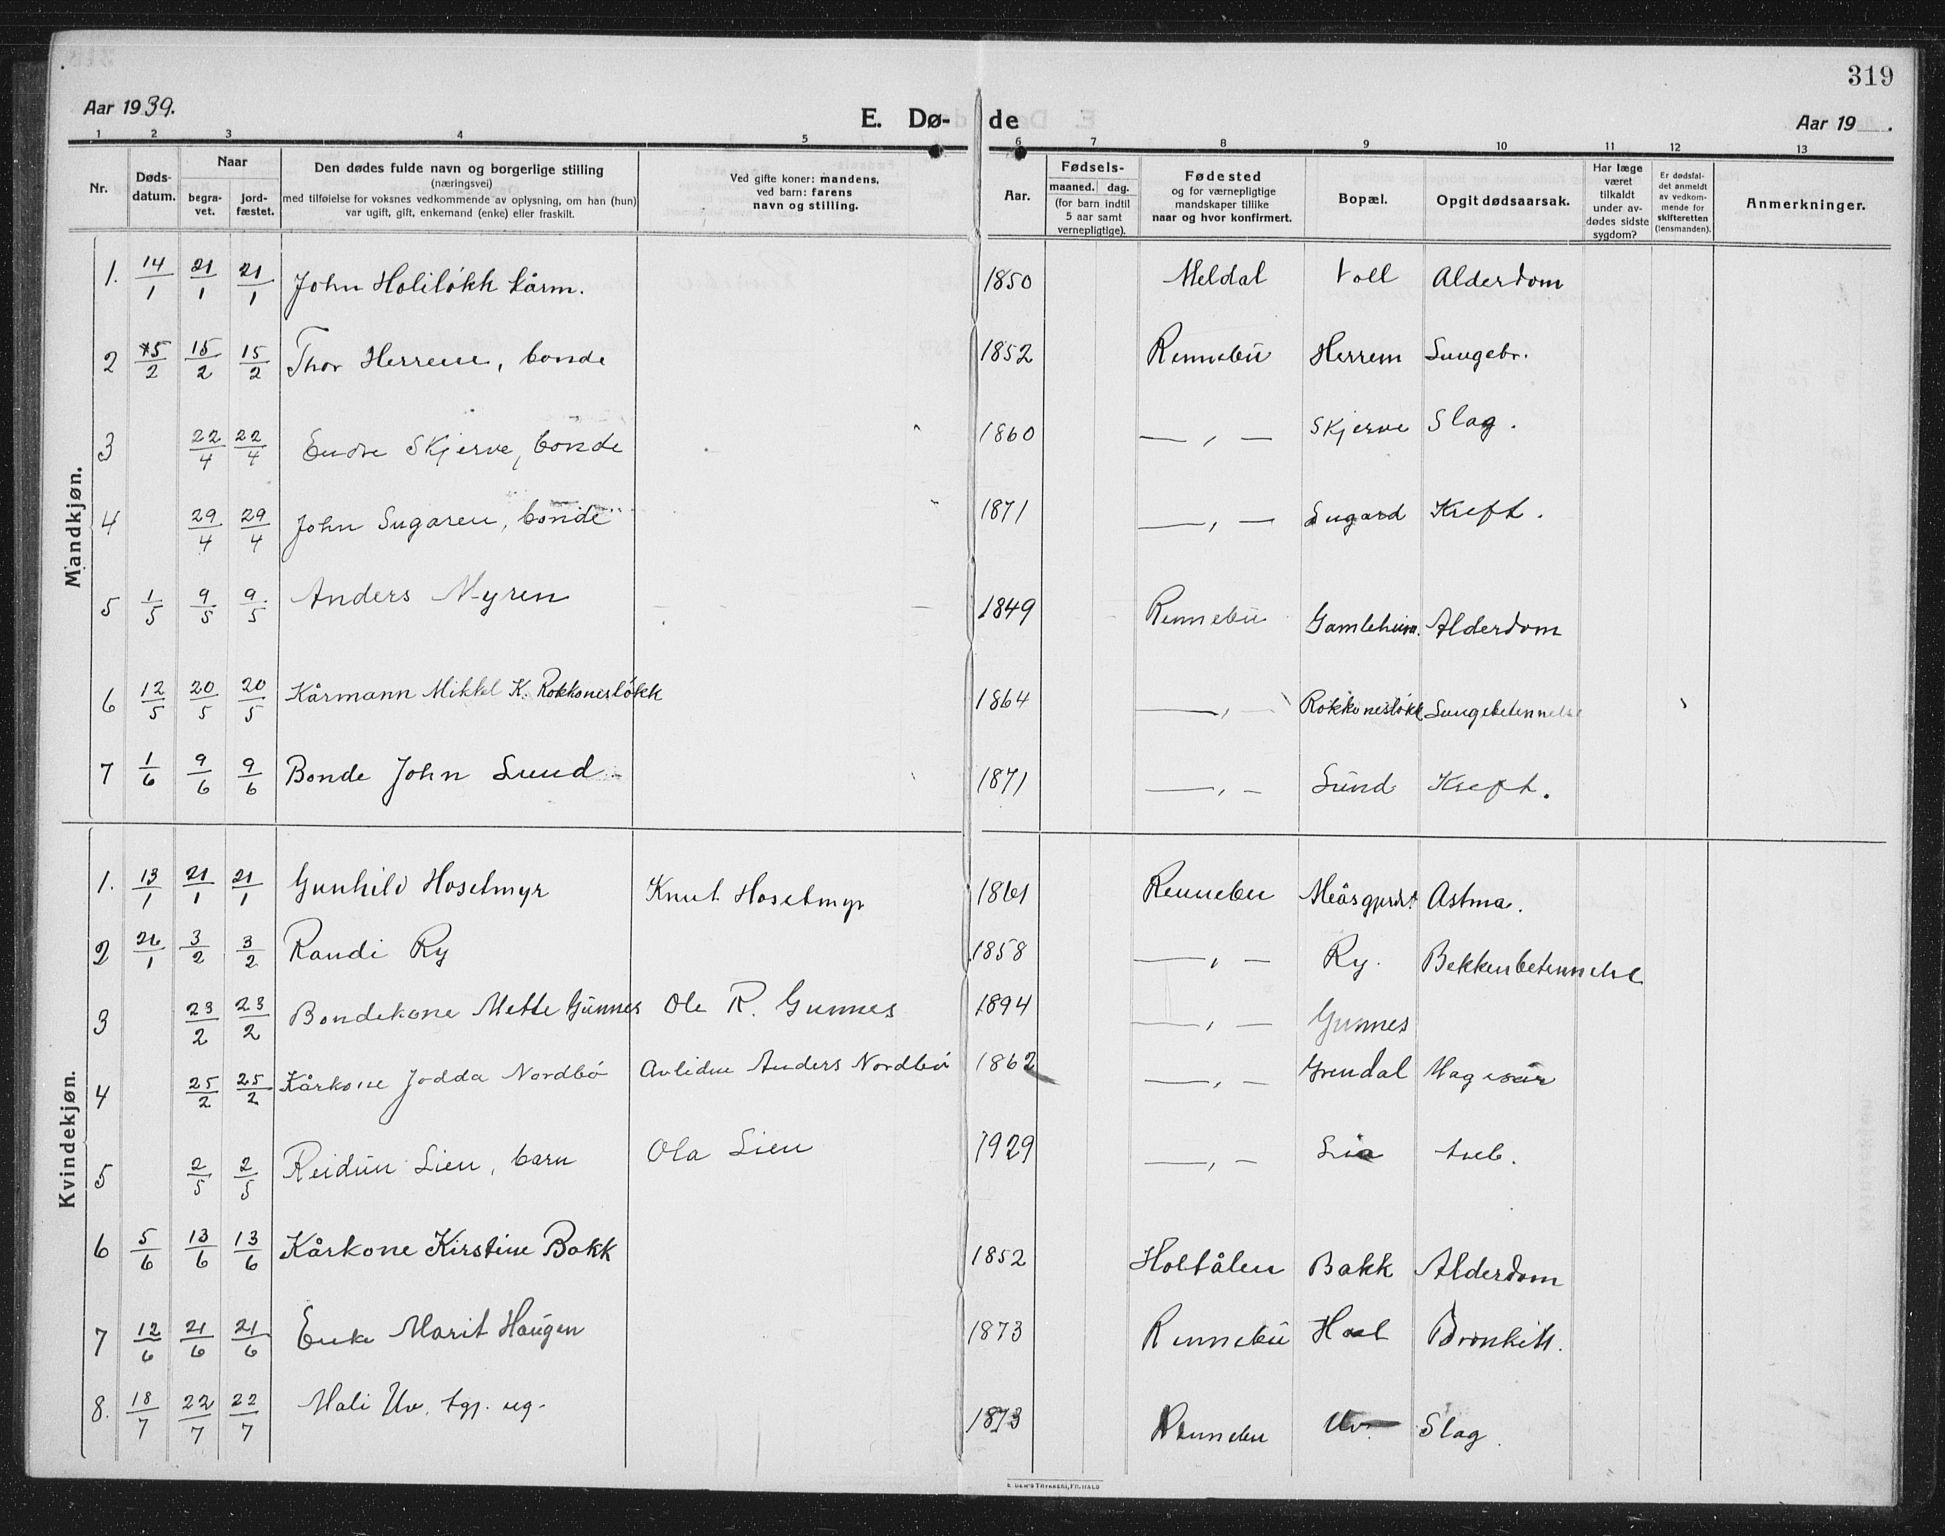 319
Aar 1939.
E. Dø- de
Aar 19 .
1 2 3 4 5 6 7 8 9 10 11 12 13
Nr.
Døds-
datum.
Naar
begra-
vet.
jord-
fæstet.
Den dødes fulde navn og borgerlige stilling
(næringsvei)
med tilføielse for voksnes vedkommende av oplysning, om han (hun)
var ugift, gift, enkemand (enke) eller fraskilt.
Ved gifte koner: mandens,
ved barn: farens
navn og stilling.
Aar.
Fødsels-
maaned. dag.
(for barn indtil
5 aar samt
vernepligtige).
Fødested
og for værnepligtige
mandskaper tillike
naar og hvor konfirmert.
Bopæl.
Opgit dødsaarsak.
Har læge
været
tilkaldt
under av-
dødes sidste
sygdom?
Er dødsfal-
det anmeldt
av vedkom-
mende for
skifteretten
(lensmanden).
Anmerkninger.
Mandkjøn.
1. 14/1 21/1 21/1 John Holiløkk kårm. 1850 Meldal Voll Alderdom
2 5/2 15/2 15/2 Thor Herrem, bonde 1852 Rennebu Herrem Lungebr.
3 22/4 22/4 Endre Skjerve, bonde 1860 —„— Skjerve Slag.
4 29/4 29/4 John Lugaren, bonde 1871 —„— Lugard Kreft.
5 1/5 9/5 9/5 Anders Myren 1849 Rennebu Gamlehjem. Alderdom
6 12/5 20/5 20/5 Kårmann Mikkel K. Rokkonesløkk 1864 —„— Rokkonesløkk Lungebetennelse
7 1/6 9/6 9/6 Bonde John Lund 1871 —„— Lund Kreft.
Kvindekjøn.
1. 13/1 21/1 21/1 Gunhild Hosetmyr Knut Hosetmyr 1861 Rennebu Astma.
2 26/1 3/2 3/2 Randi Ry 1858 —„— Ry. Bekkenbetennelse
3 23/2 23/2 Bondekone Mette Gunnes Ole R. Gunnes 1894 —„— Gunnes
4 25/2 25/2 Kårkone Jodda Nordbø Avlidne Anders Nordbø 1862 —„— Grendal Magesår
5 2/5 2/5 Reidun Lien, barn Ola Lien 1929 —„— Lia tub.
6 5/6 13/6 13/6 Kårkone Kirstine Bakk 1852 Holtålen Bakk Alderdom
7 12/6 21/6 21/6 Enke Marit Haugen 1873 Rennebu Hoel Bronkitt.
8. 18/7 22/7 22/7 Mali Uv. tgj. ug. 1873 Rennebu Uv. Slag.